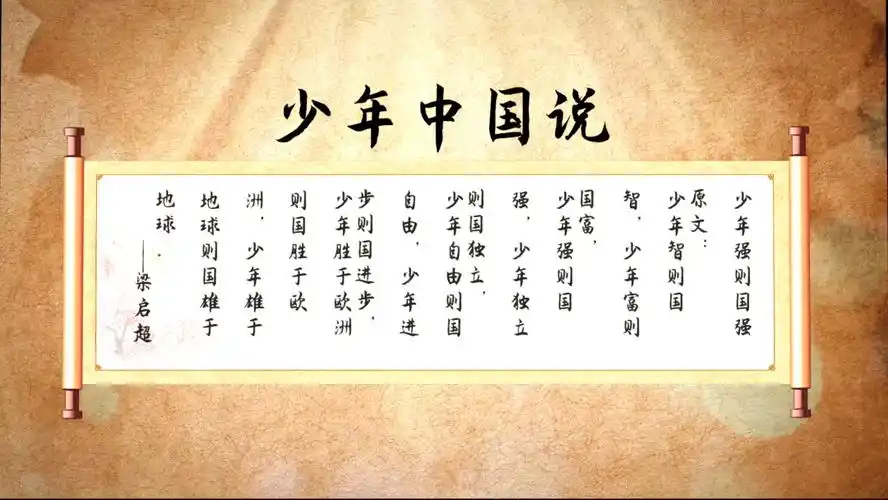 少年中国说
少年强则国强
原文：
少年智则国
智，少年富则
国富，
少年强则国
强，少年独立
则国独立，
少年自由则国
自由，少年进
步则国进步，
少年胜于欧洲
则国胜于欧
洲，少年雄于
地球则国雄于
地球.
——梁启超